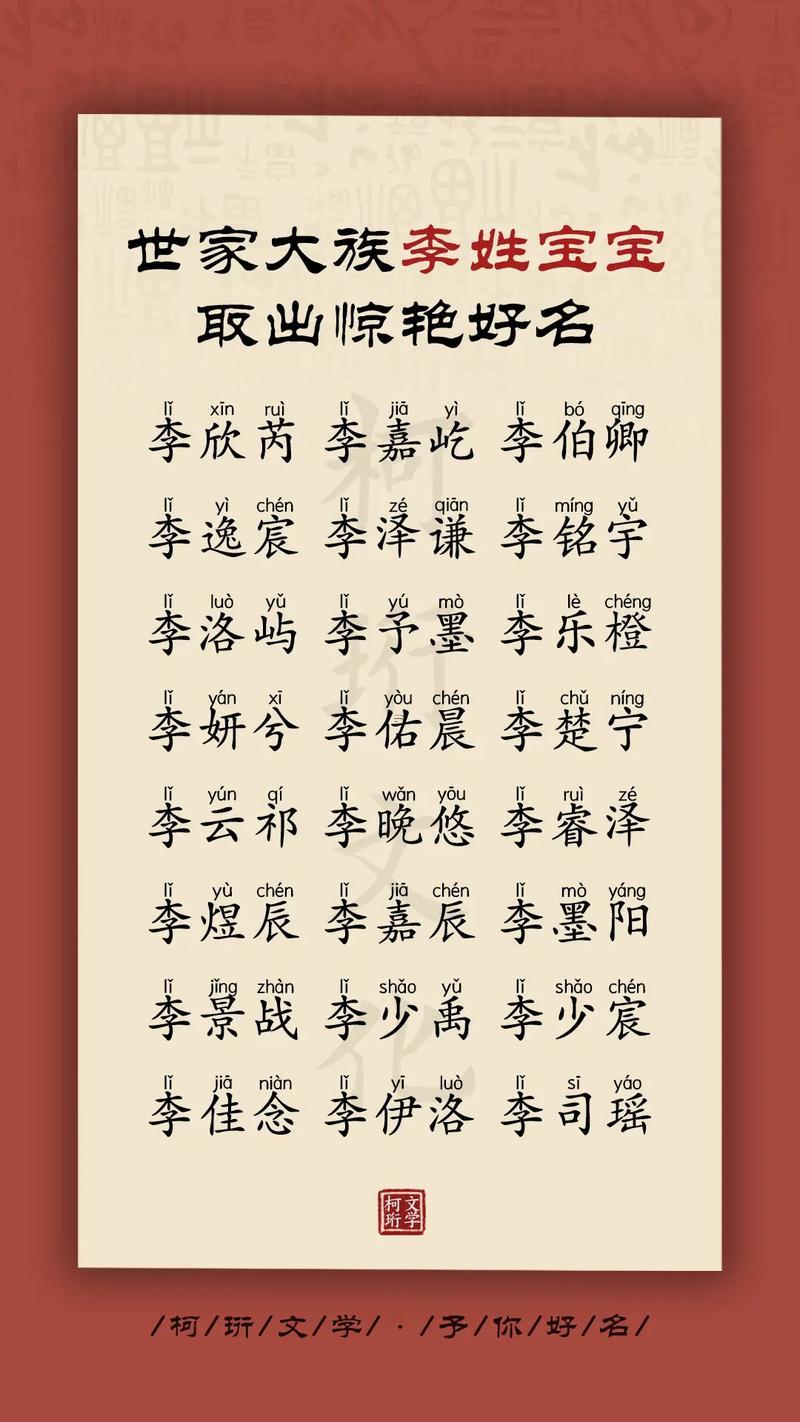 世家大族李姓宝宝
取出惊艳好名
lǐ xīn ruì lǐ jiā yì lǐ bó qīng
李欣芮 李嘉屹 李伯卿
lǐ yì chén lǐ zé qiān lǐ míng yǔ
李逸宸 李泽谦 李铭宇
lǐ luò yǔ lǐ yú mò lǐ lè chéng
李洛屿 李予墨 李乐橙
lǐ yán xī lǐ yòu chén lǐ chǔ níng
李妍兮 李佑晨 李楚宁
lǐ yún qí lǐ wǎn yōu lǐ ruì zé
李云祁 李晚悠 李睿泽
lǐ yù chén lǐ jiā chén lǐ mò yáng
李煜辰 李嘉辰 李墨阳
lǐ jǐng zhàn lǐ shǎo yǔ lǐ shǎo chén
李景战 李少禹 李少宸
lǐ jiā niàn lǐ yī luò lǐ sī yáo
李佳念 李伊洛 李司瑶
柯珩文化
柯珩文学
/柯/珩/文/学/·/予/你/好/名/